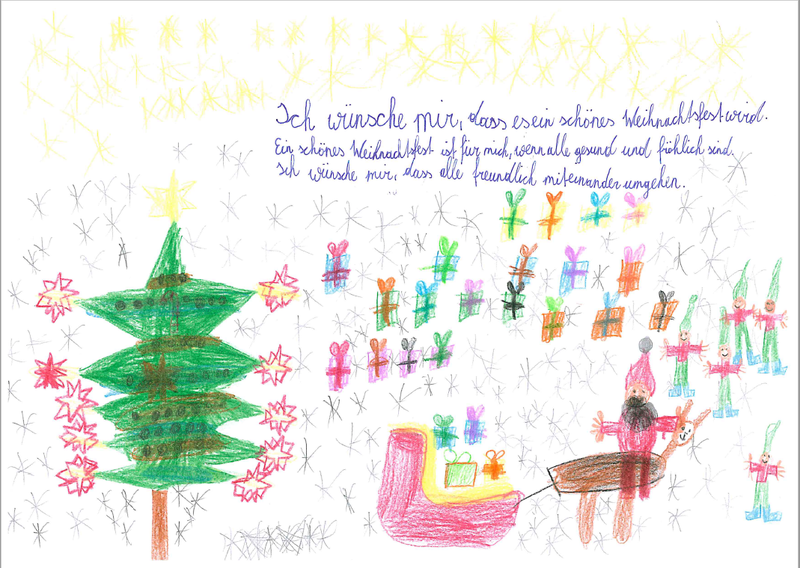 Ich wünsche mir, dass es ein schönes Weihnachtsfest wird.
Ein schönes Weihnachtsfest ist für mich, wenn alle gesund und fröhlich sind.
Ich wünsche mir, dass alle freundlich miteinander umgehen.